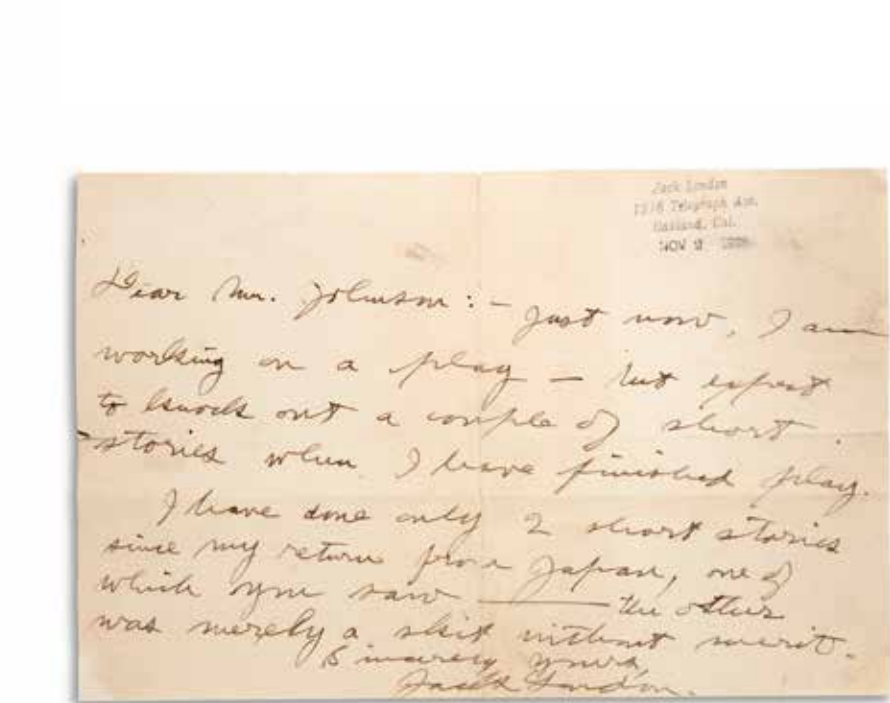 Jack London
Telegraph Ave.
Oakland, Cal.
NOV 2
Dear Mr. Johnson: – Just now, I am
working on a play – but expect
to knock out a couple of short
stories when I have finished play.
I have done only 2 short stories
since my return from Japan, one of
which you saw — the other
was merely a skit without merit.
Sincerely yours,
Jack London.